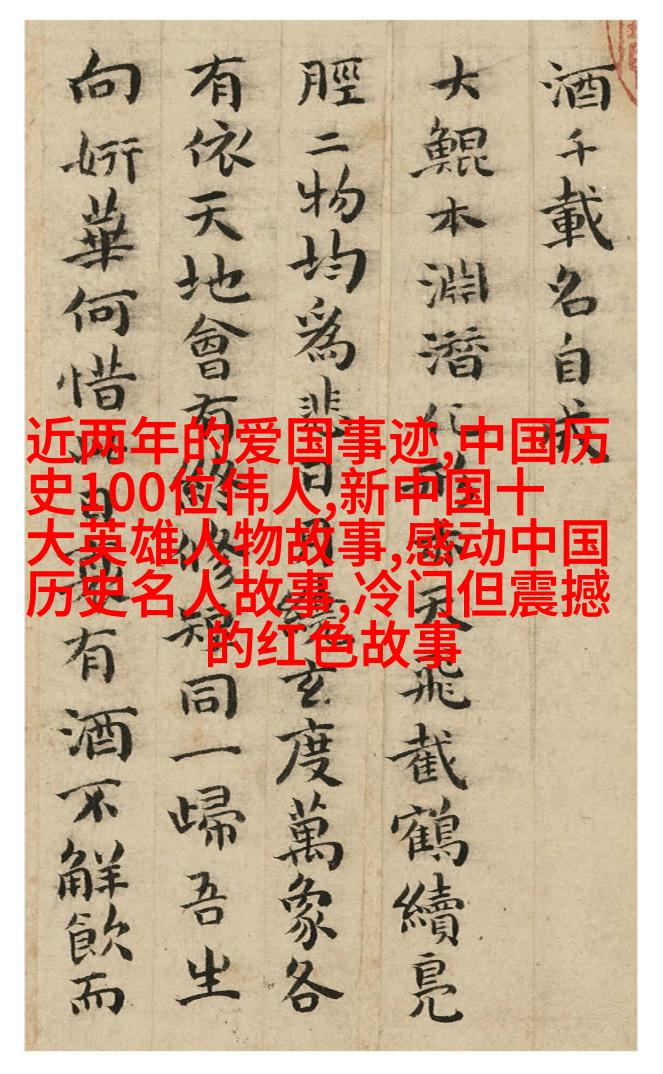 酒千載名自
大鯤本淵潛化天飛截鶴續鳧
脛二物均為悲日月繞玄度萬象各
有依天地會有終修短同一歸吾生
向妍華何惜日有酒不解飲而
近两年的爱国事迹,中国历
史100位伟人,新中国十
大英雄人物故事,感动中国
历史名人故事,冷门但震撼
的红色故事